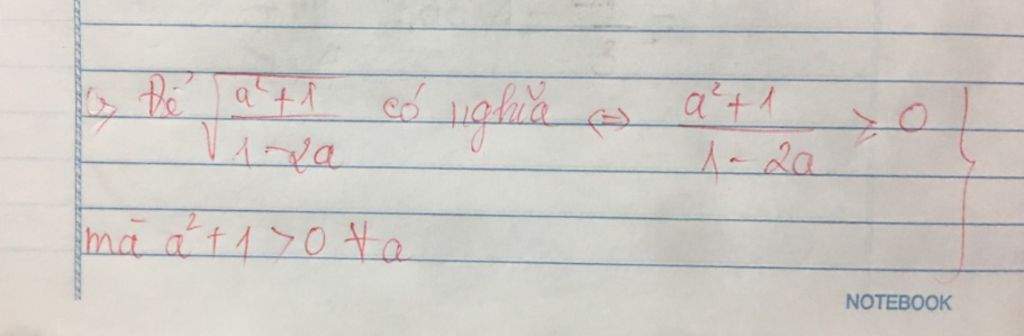 c, Để √(a²+1)/(1-2a) có nghĩa ⇔ (a²+1)/(1-2a) ≥ 0 }
mà a²+1 > 0 ∀a
NOTEBOOK